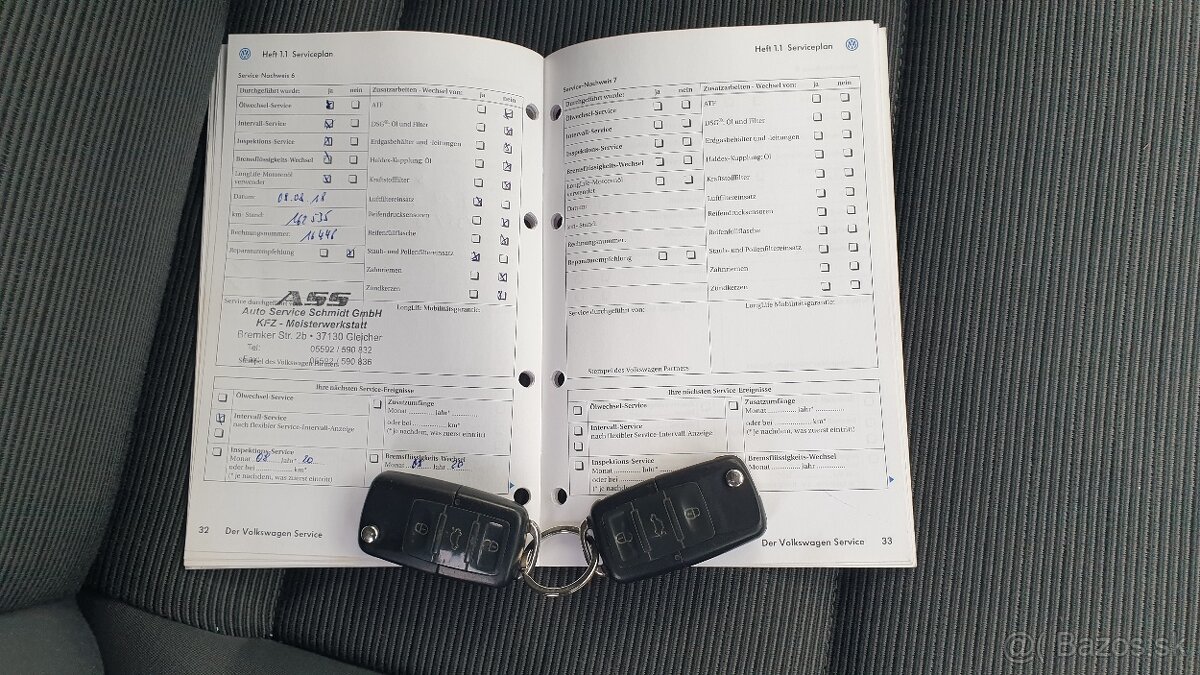 Heft 1.1 Serviceplan
Service-Nachweis 6
Durchgeführt wurde: ja nein
Ölwechsel-Service
Intervall-Service
Inspektions-Service
Bremsflüssigkeits-Wechsel
LongLife-Motorenöl
verwendet
Datum: 08.08.18
km- Stand: 162 535
Rechnungsnummer: 16446
Reparaturempfehlung
Zusatzarbeiten - Wechsel von: ja nein
ATF
DSG®: Öl und Filter
Erdgasbehälter und -leitungen
Haldex-Kupplung: Öl
Kraftstofffilter
Luftfiltereinsatz
Reifendrucksensoren
Reifenfüllflasche
Staub- und Pollenfiltereinsatz
Zahnriemen
Zündkerzen
Service durchgeführt von:
LongLife Mobilitätsgarantie:
ASS
Auto Service Schmidt GmbH
KFZ - Meisterwerkstatt
Bremker Str. 2b • 37130 Gleichen
Tel: 05592 / 590 832
Fax: 05592 / 590 836
Stempel des Volkswagen Partners
Ihre nächsten Service-Ereignisse
Ölwechsel-Service
Intervall-Service
nach flexibler Service-Intervall-Anzeige
Inspektions-Service
Monat 08 Jahr* 20
oder bei ............ km*
(* je nachdem, was zuerst eintritt)
Zusatzumfänge
Monat ............ Jahr* ............
oder bei ............ km*
(* je nachdem, was zuerst eintritt)
Bremsflüssigkeits-Wechsel
Monat 08 Jahr 20
32 Der Volkswagen Service
Heft 1.1 Serviceplan
Service-Nachweis 7
Durchgeführt wurde: ja nein
Ölwechsel-Service
Intervall-Service
Inspektions-Service
Bremsflüssigkeits-Wechsel
LongLife-Motorenöl
verwendet
Datum:
km- Stand:
Rechnungsnummer:
Reparaturempfehlung
Zusatzarbeiten - Wechsel von: ja nein
ATF
DSG®: Öl und Filter
Erdgasbehälter und -leitungen
Haldex-Kupplung: Öl
Kraftstofffilter
Luftfiltereinsatz
Reifendrucksensoren
Reifenfüllflasche
Staub- und Pollenfiltereinsatz
Zahnriemen
Zündkerzen
Service durchgeführt von:
LongLife Mobilitätsgarantie:
Stempel des Volkswagen Partners
Ihre nächsten Service-Ereignisse
Ölwechsel-Service
Intervall-Service
nach flexibler Service-Intervall-Anzeige
Inspektions-Service
Monat ............ Jahr*
oder bei
(* je
Zusatzumfänge
Monat ............ Jahr* ............
oder bei ............ km*
(* je nachdem, was zuerst eintritt)
Bremsflüssigkeits-Wechsel
Monat ............ Jahr ............
Der Volkswagen Service 33
Bazos.sk